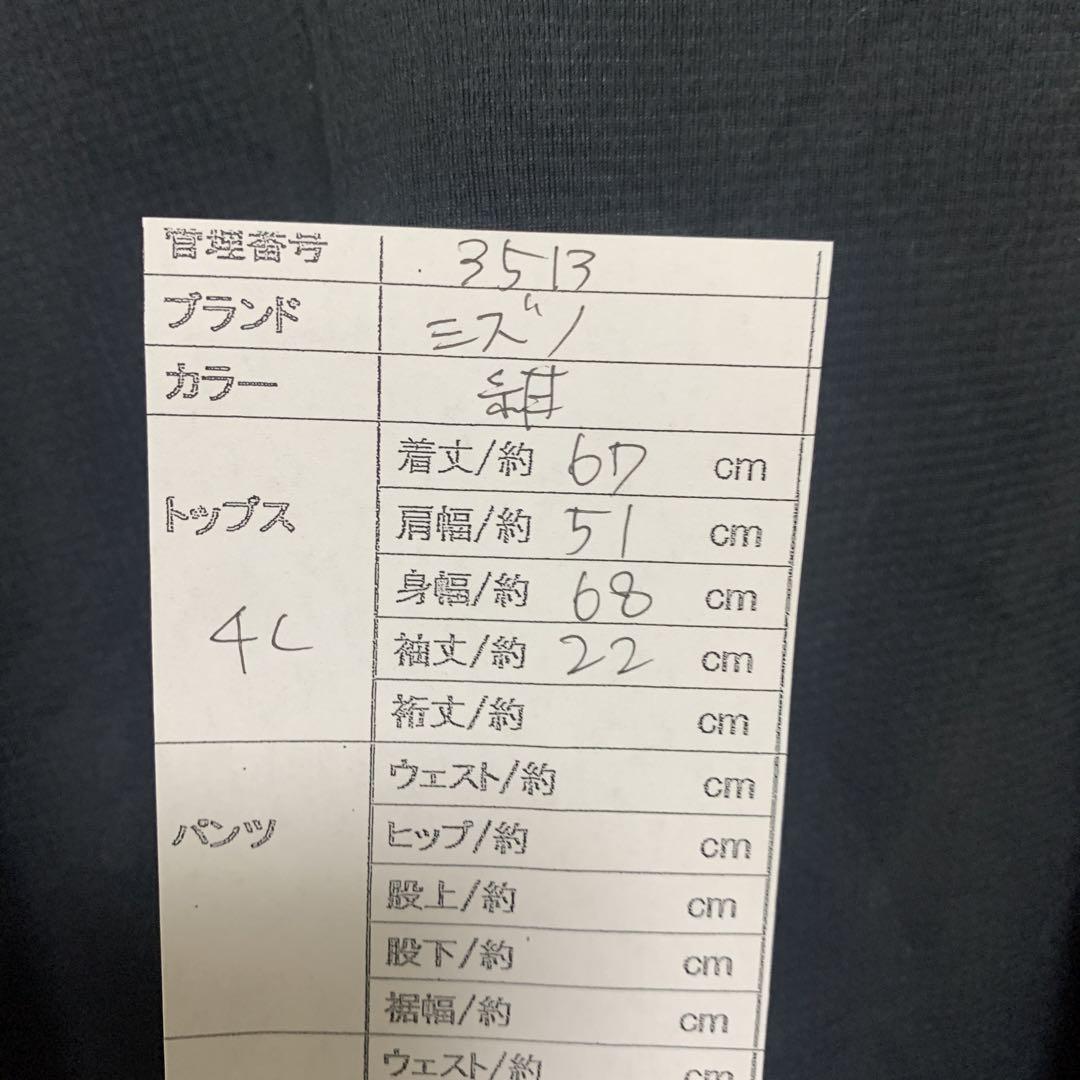 管理番号 3513
ブランド ミズノ
カラー 紺
トップス 4L
着丈/約 67 cm
肩幅/約 51 cm
身幅/約 68 cm
袖丈/約 22 cm
裄丈/約 cm
パンツ
ウェスト/約 cm
ヒップ/約 cm
股上/約 cm
股下/約 cm
裾幅/約 cm
ウェスト/約 cm